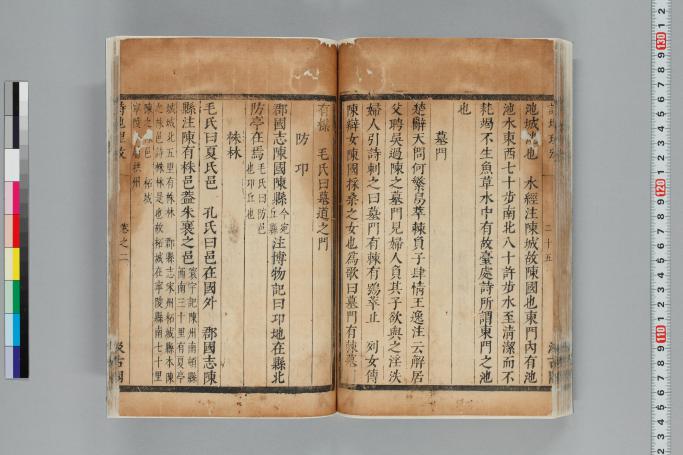 詩地理攷
二十五
汲古閣
池城池也 水經注陳城故陳國也東門內有池
池水東西七十步南北八十許步水至清潔而不
耗竭不生魚草水中有故臺處詩所謂東門之池
也
墓門
楚辭天問何繁鳥萃棘負子肆情王逸注云解居
父聘吳過陳之墓門見婦人負其子欲與之淫泆
婦人引詩刺之曰墓門有棘有鴞萃止 列女傳
陳辯女陳國採桑之女也為歌曰墓門有棘墓
有楳 毛氏曰墓道之門
防卭
郡國志陳國陳縣今宛丘縣注博物記曰卭地在縣北
防亭在焉毛氏曰防邑也卭丘也
株林
毛氏曰夏氏邑 孔氏曰邑在國外 郡國志陳
縣注陳有株邑蓋朱襄之邑寰宇記陳州南頓縣西南三十里有夏亭
城城北五里有株林 郡縣志宋州柘城縣本陳
之株邑詩株林是也故柘城在寧陵縣南七十里
陳之邑 柘城
寧陵 拱州
詩地理攷
卷之二
汲古閣